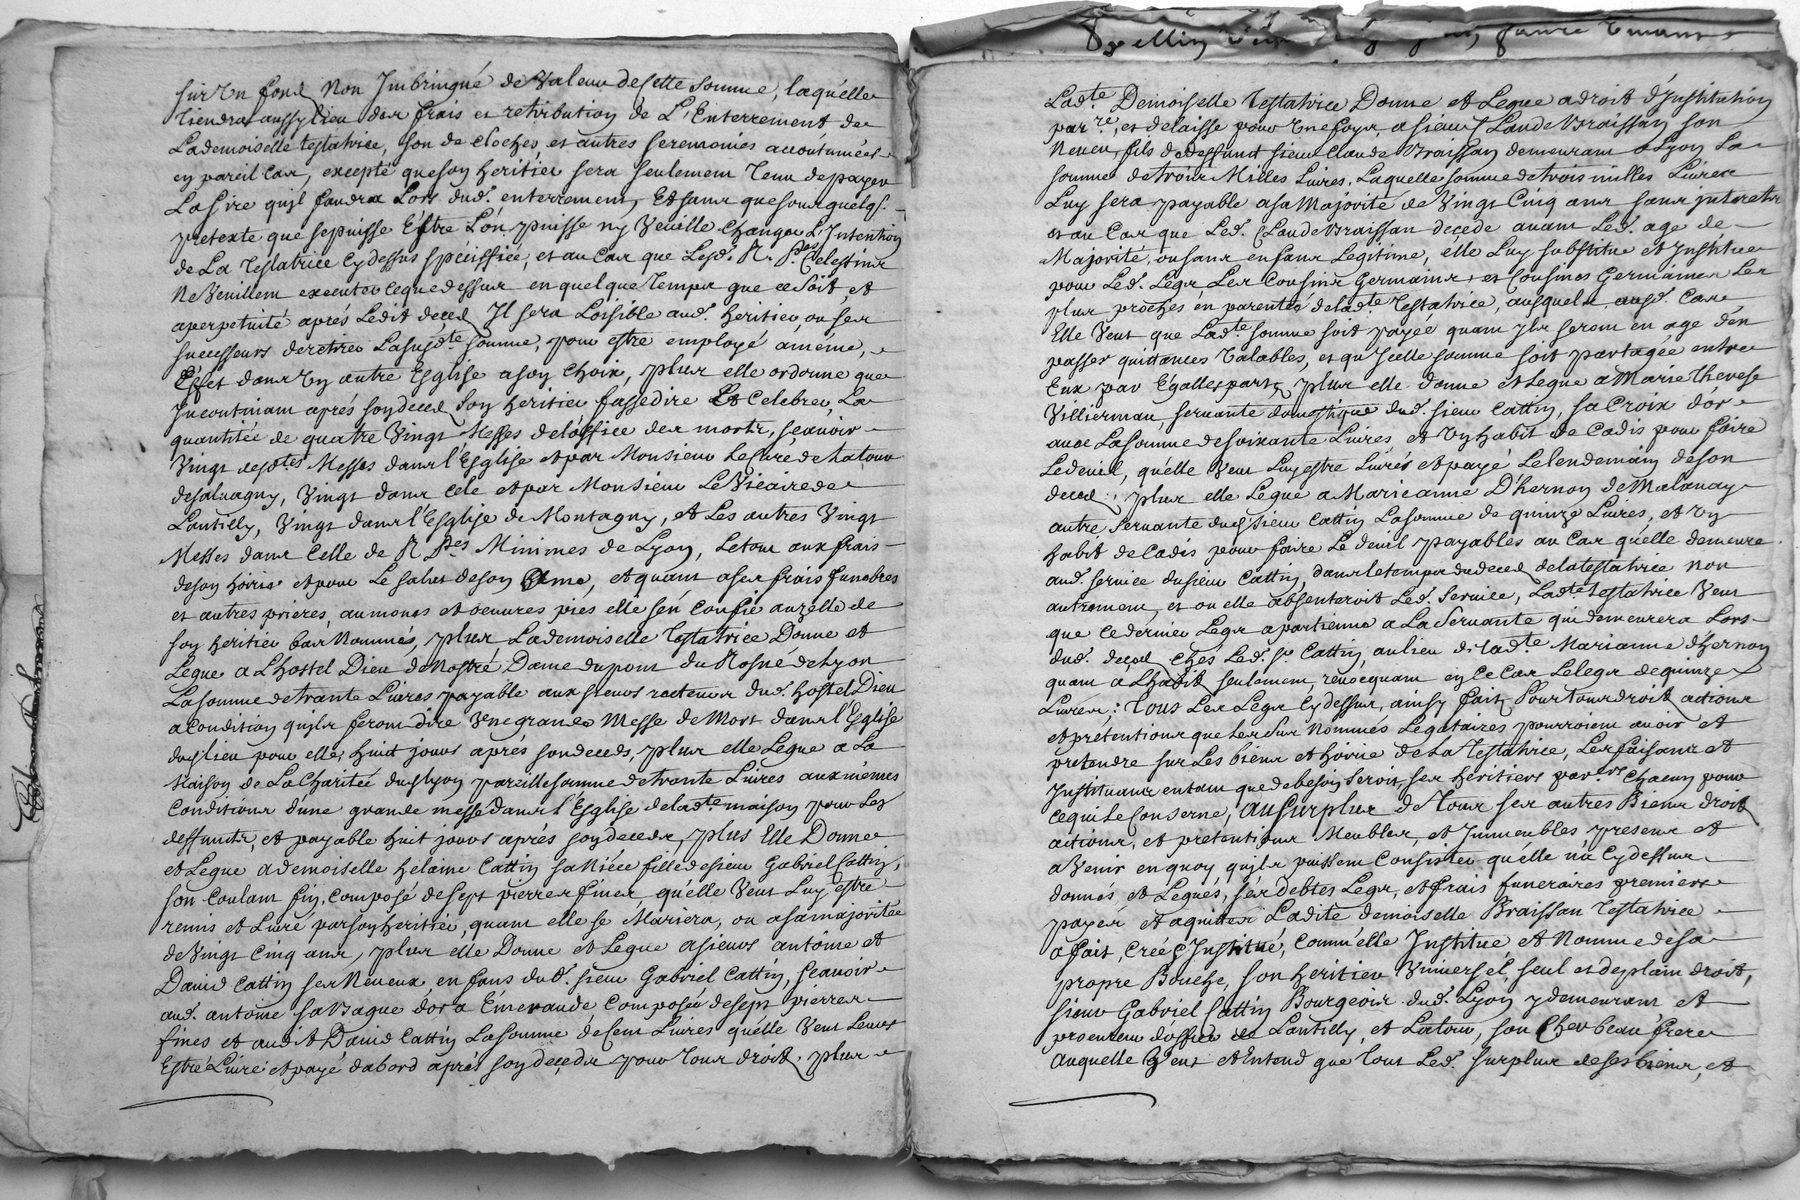 sur Un fond Non Imbringué de Valeur de Cette Somme, laquélle
tiendra aussy lieu des frais et retribution de L'Enterrement de
Lademoiselle testatrice, son de cloches et autres seremonies accoutumées
en pareil Cas, excepté que son heritier sera seulement Tenu de payer
La Sire quil faudra Lors dud. enterrement, Et sans que sous quelqs.
pretexte que se puisse Estre L'on puisse ny Veuille Changer L'Intention
de La Testatrice Cy dessus speciffiée, et au Cas que Lesd. R. Ps. Celestins
Ne Veuillent executer ce que dessus en quelque Temps que ce soit, et
a perpetuité aprés Ledit deced Il sera Loisible aud. heritier, ou ses
successeurs de retirer La susdte somme, pour estre employé améme,
Effet dans Un autre Esglise a son Choix, plus elle ordonne que
Incontinant aprés son deced Son heritier fasse dire Et Celebrer, La
quantitée de quatre Vingt Messes de l'office des morts, sçavoir
Vingt desdtes Messes dans l'Esglise et par Monsieur Le Curé de Latour
de salvagny, Vingt dans Cele et par Monsieur Le Vicaire de
Lantilly, Vingt dans l'Esglise de Montagny, et Les autres Vingt
Messes dans Celle de R Pes Minimes de Lyon, Letout aux frais
de son hoirie et pour Le salut de son Ame, et quant a ses frais funebres
et autres prieres, aumones et oeuvres pies elle s'en Confie au zelle de
son heritier bas Nommés, plus Lademoiselle Testatrice Donne et
Legue a L'hostel Dieu de Nostre Dame du pont du Rosne de Lyon
La somme de trante Livres payable aux sieurs recteurs dud. hostel Dieu
a Condition quils feront dire Une grande Messe de Mort dans l'Esglise
dud lieu pour elle, huit jours aprés son deceds, plus elle Legue a La
Maison de La Charitée dud Lyon pareille somme de trante Livres aux mémes
Conditions d'une grande messe dans l'Esglise de ladte maison pour Les
deffunts, et payable huit jours aprés son deceds, plus Elle Donne
et Legue a demoiselle helaine Cattin sa Niéce fille de sieur Gabriel Cattin,
son Coulant fin, Composé de sept pierres fines, qu'elle Veut Luy estre
remis et Livré par son heritier, quant elle se Mariera, ou a sa majoritée
de Vingt Cinq ans, plus elle Donne et Legue a sieurs antoine et
David Cattin ses Neveux, en fans dud. sieur Gabriel Cattin, sçavoir
aud. antoine sa Bague d'or a Emeraude Composée de sept pierres
fines et audit David Cattin La somme de Cent Livres qu'elle Veut Leurs
Estre Livré et payé dabord aprés son deceds pour tous droits, plus
Ladte Demoiselle Testatrice Donne et Legue a droit d'Institution
parre, et delaisse pour Une foys, a sieur Claude Braissan son
Neveu, fils de deffunt sieur Claude Braissan demeurant a Lyon La
somme de trois Milles Livres, Laquelle somme de trois milles Livres
Luy sera payable a sa Majorité de Vingt Cinq ans sans interets
et au Cas que Led. Claude Braissan decede avant Led. age de
Majorité, ou sans en fans Legitime, elle Luy substitue et Institue
pour Led. Legs Les Cousins Germains, et Cousines Germaines Les
plus proches en parentée de ladte Testatrice, ausquels ausd. Cas
Elle Veut que Ladte somme soit payée quant Ils seront en age d'en
passer quittances Valables, et qu'Icelle somme soit partagée entre
Eux par Egalles parts, plus elle donne et Legue a Marie Therese
Villierman, servante domestique dud. sieur Cattin, sa Croix d'or
avec La somme de soixante Livres et Un habit de Cadis pour faire
Le deuil, qu'elle Veut Luy estre Livrés et payé Le lendemain de son
deced, plus elle Legue a Marieanne D'hernon de Malavay
autre servante dud sieur Cattin La somme de quinze Livres, et Un
habit de Cadis pour faire Le deuil payables au Cas qu'elle demeure
aud. service du sieur Cattin, dans le temps du deced de la testatrice non
autrement, et ou elle absenteroit Led. service, Ladte testatrice Veut
que Ce dernier Legs apartienne a La Servante qui demeurera Lors
dud. deced Chés Led. sr. Cattin, au lieu de ladte Marianne d'hernon
quant a L'habit seulement, revocquant en Ce Cas Le legs de quinze
Livres; Tous Les Legs Cy dessus, ainsy fait Pour tous droits, actions
et pretentions que Les sus Nommés Legataires pourroient avoir et
pretendre sur Les biens et hoirie de La Testatrice, Les faisant et
Instituant en tant que de besoin seroit, ses heritiers par.rs Chacun pour
Ce qui Le Conserne, Au Surplus de Tous ses autres Biens droits
actions, et pretentions Meubles, et Immeubles presens et
a Venir en quoy quils puissent Consister qu'elle n'a Cy dessus
donnés et Legués, ses debtes Legs, et frais funeraires premiers
payer et aquittés Ladite demoiselle Braissan Testatrice
a fait, Créé & Institué, Comm'elle Institue et Nomme de sa
propre Bouche, son heritier Univers'el, seul et de plain droit,
sieur Gabriel Cattin Bourgeois dud. Lyon y demeurant et
procureur d'office de Lantilly, et Latour, son Cher beau frere
Auquelle Veut et Entend que Tout Led. surplus de ses biens, et